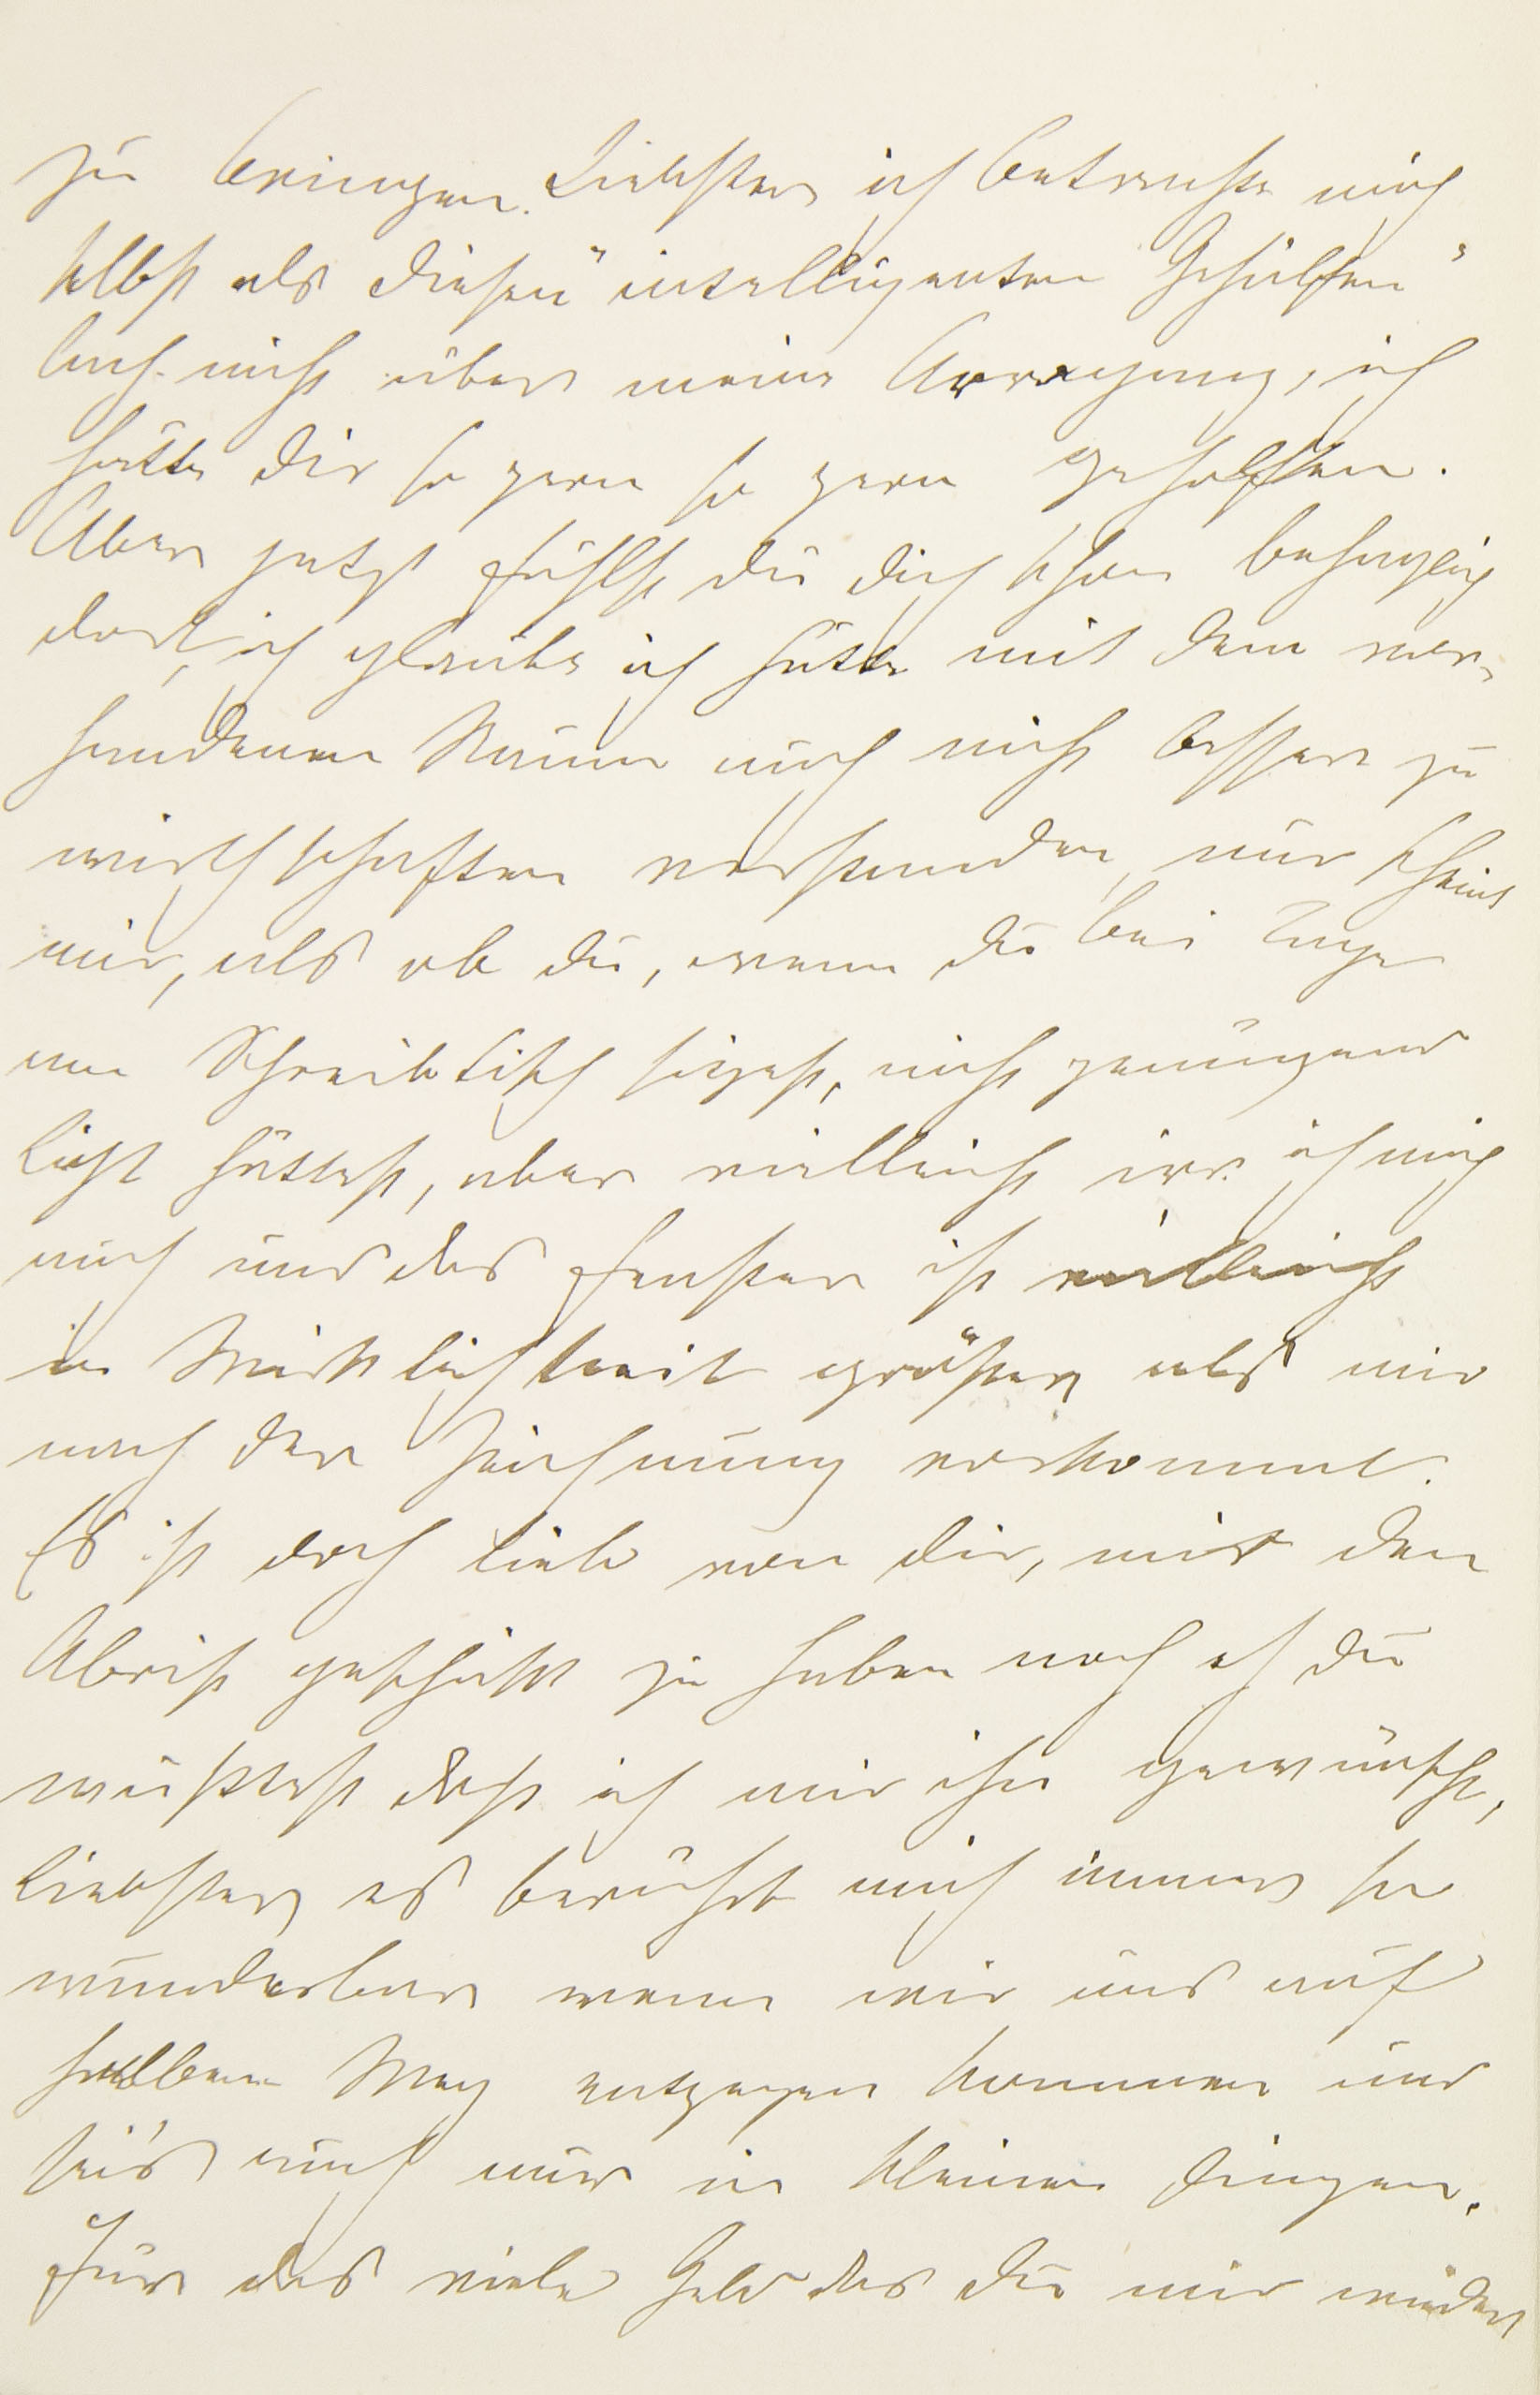 zu bringen. Liebster ich betrachte mich
selbst als diesen "intelligenten Gehülfen"
lach nicht über meine Anregung, ich
hätte dir so gern so gern geholfen.
Aber jetzt fühlst du dich schon behaglich
dort, ich glaube ich hätte mit dem vor-
handenen Raum auch nicht besser zu
wirthschaften verstanden, nur scheint
mir, als ob du, wenn du bei Tage
am Schreibtisch sitzest, nicht genügend
Licht hättest, aber vielleicht irre ich mich
auch und das Fenster ist vielleicht
in Wirklichkeit größer, als mir
nach der Zeichnung vorkommt.
Es ist doch lieb von dir, mir den
Abriß geschickt zu haben noch eh du
wußtest daß ich mir ihn gewünscht,
Liebster, es berührt mich immer so
wunderbar wenn wir uns auf
halbem Weg entgegen kommen und
sei's auch nur in kleinen Dingen.
Für das viele Geld das du mir wieder